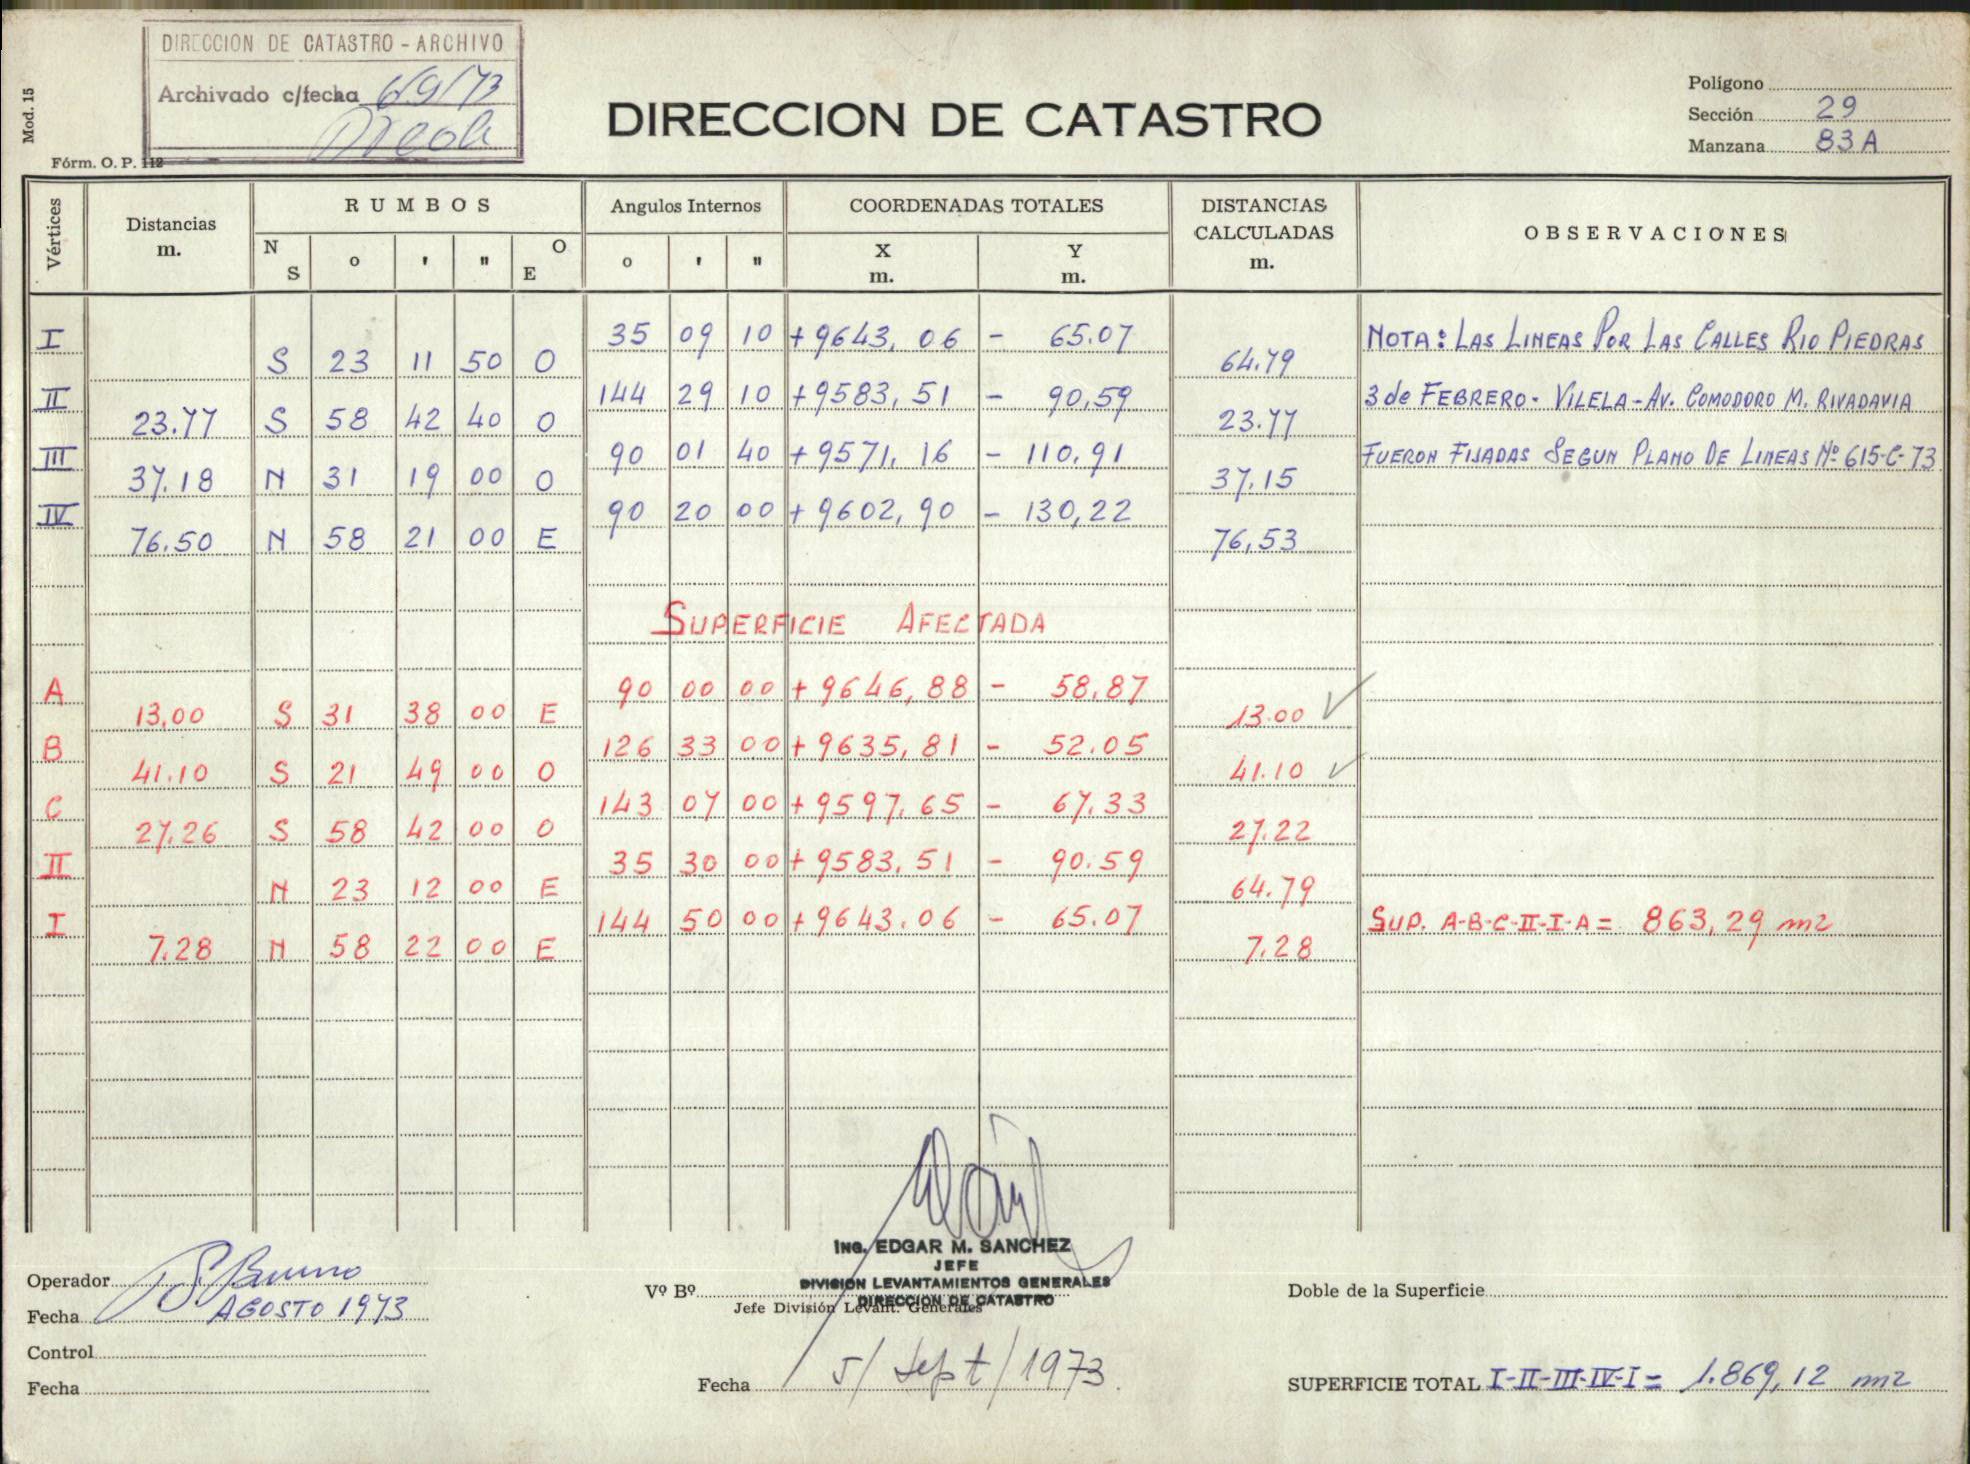 DIRECCION DE CATASTRO - ARCHIVO
Archivado c/fecha 6/9/73
Mod. 15
Fórm. O. P. 112
DIRECCION DE CATASTRO
Polígono
Sección 29
Manzana 83 A
Vértices Distancias m. RUMBOS N S ° ' " O E Angulos Internos ° ' " COORDENADAS TOTALES X m. Y m. DISTANCIAS CALCULADAS m. OBSERVACIONES
I 35 09 10 +9643,06 - 65.07 NOTA: LAS LINEAS POR LAS CALLES RIO PIEDRAS
S 23 11 50 O 64.79
II 144 29 10 +9583,51 - 90,59 3 de FEBRERO - VILELA - AV. COMODORO M. RIVADAVIA
23.77 S 58 42 40 O 23.77
III 90 01 40 +9571,16 - 110,91 FUERON FIJADAS SEGUN PLANO DE LINEAS Nº 615-C-73
37.18 N 31 19 00 O 37.15
IV 90 20 00 +9602,90 - 130,22
76.50 N 58 21 00 E 76,53
SUPERFICIE AFECTADA
A 90 00 00 +9646,88 - 58,87
13,00 S 31 38 00 E 13.00 ✓
B 126 33 00 +9635,81 - 52.05
41.10 S 21 49 00 O 41.10 ✓
C 143 07 00 +9597,65 - 67.33
27.26 S 58 42 00 O 27.22
II 35 30 00 +9583,51 - 90.59
N 23 12 00 E 64.79
I 144 50 00 +9643.06 - 65.07 SUP. A-B-C-II-I-A = 863,29 m2
7.28 N 58 22 00 E 7.28
Operador
Fecha AGOSTO 1973
Control
Fecha
ING. EDGAR M. SANCHEZ
JEFE
DIVISIÓN LEVANTAMIENTOS GENERALES
DIRECCION DE CATASTRO
Vº Bº
Jefe División Levant. Generales
Fecha 5/ Sept / 1973
Doble de la Superficie
SUPERFICIE TOTAL I-II-III-IV-I = 1.869,12 m2